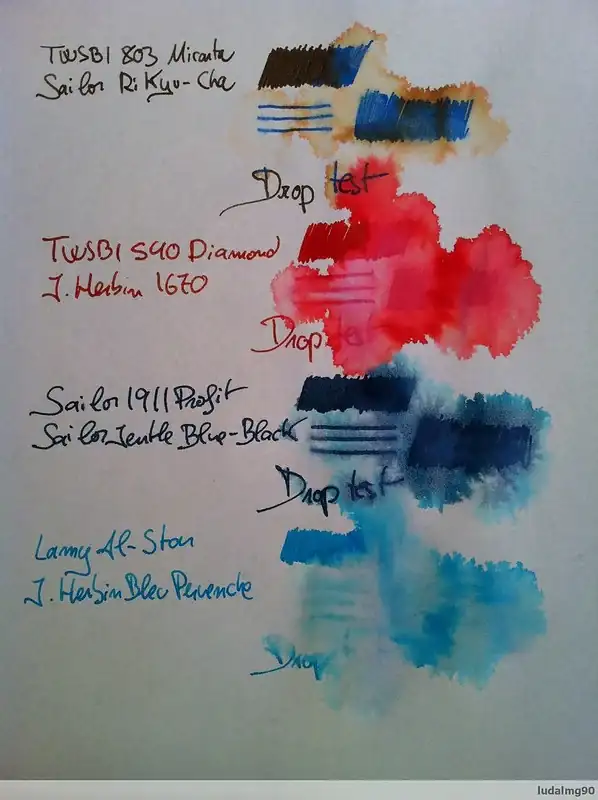 TWSBI 803 Micarta
Sailor Rikyu-Cha
Drop test
TWSBI 540 Diamond
J. Herbin 1670
Drop test
Sailor 1911 Profit
Sailor Jentle Blue-Black
Drop test
Lamy Al-Star
J. Herbin Bleu Pervenche
Drop
ludalmg90